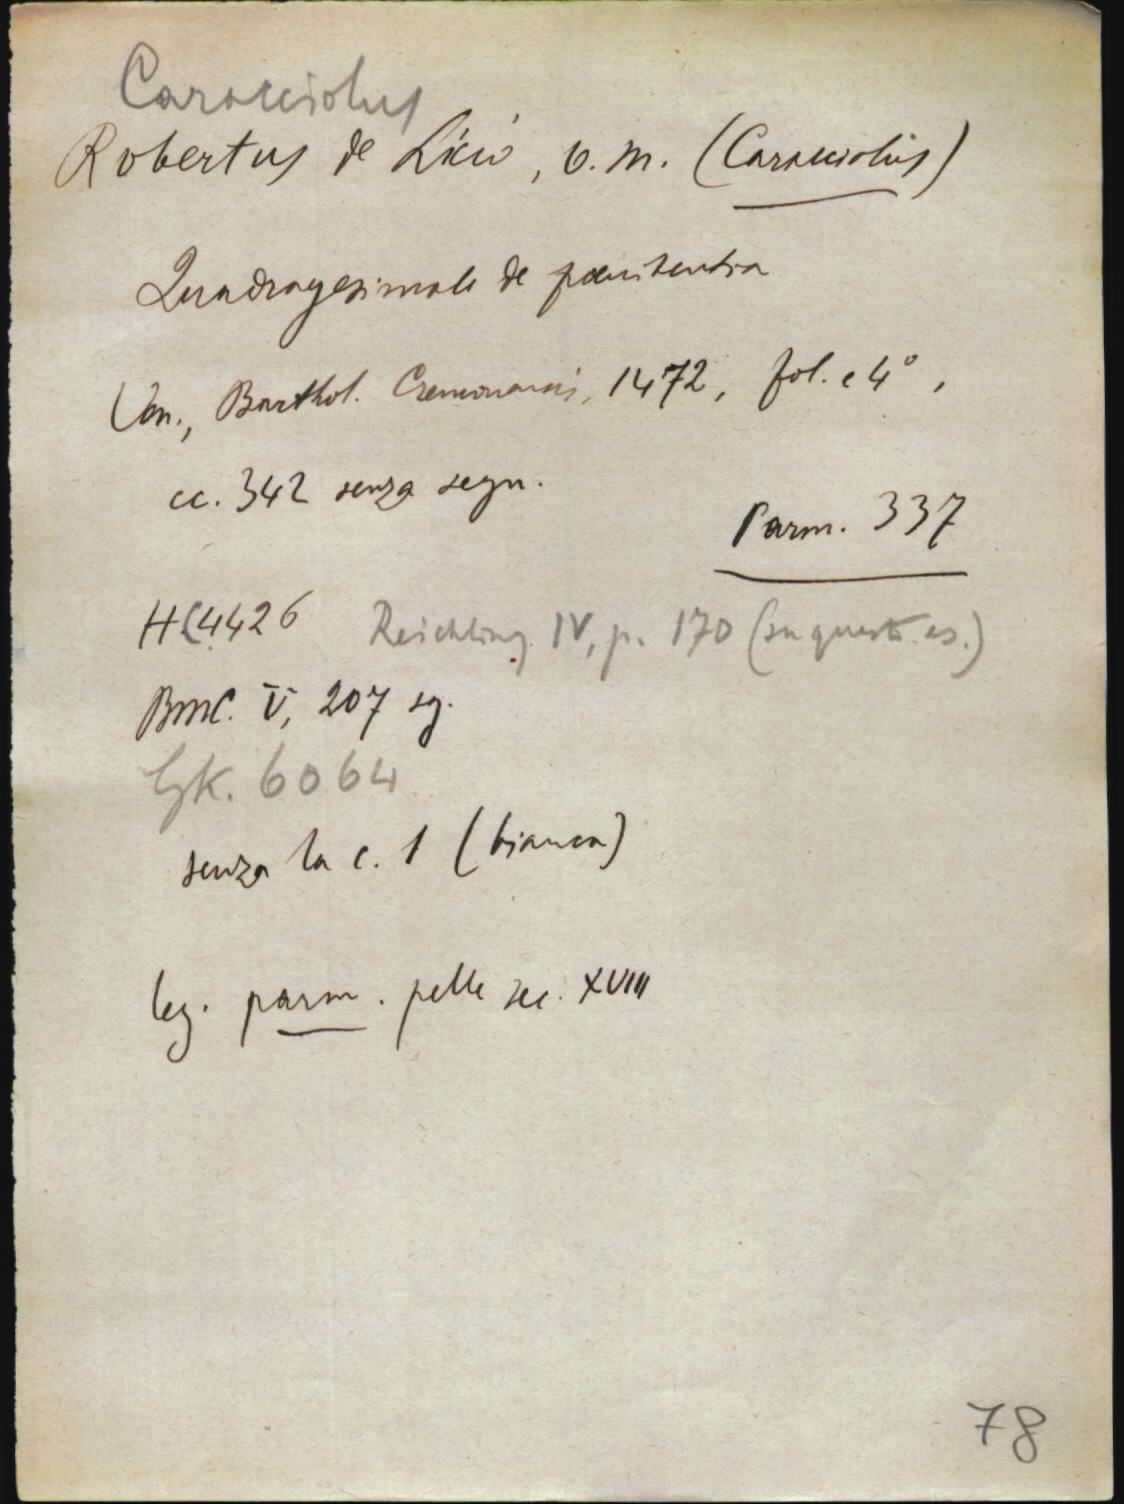 Caracciolus
Robertus de Licio, O. M. (Caracciolus)
Quadragesimale de poenitentia
Ven., Barthol. Cremonensis, 1472, fol. e 4°,
cc. 342 senza segn.
Parm. 337
HC4426 Reichling IV, p. 170 (su questo es.)
BMC. V, 207 sg.
GK. 6064
senza la c. 1 (bianca)
leg. parm. pelle sec. XVIII
78